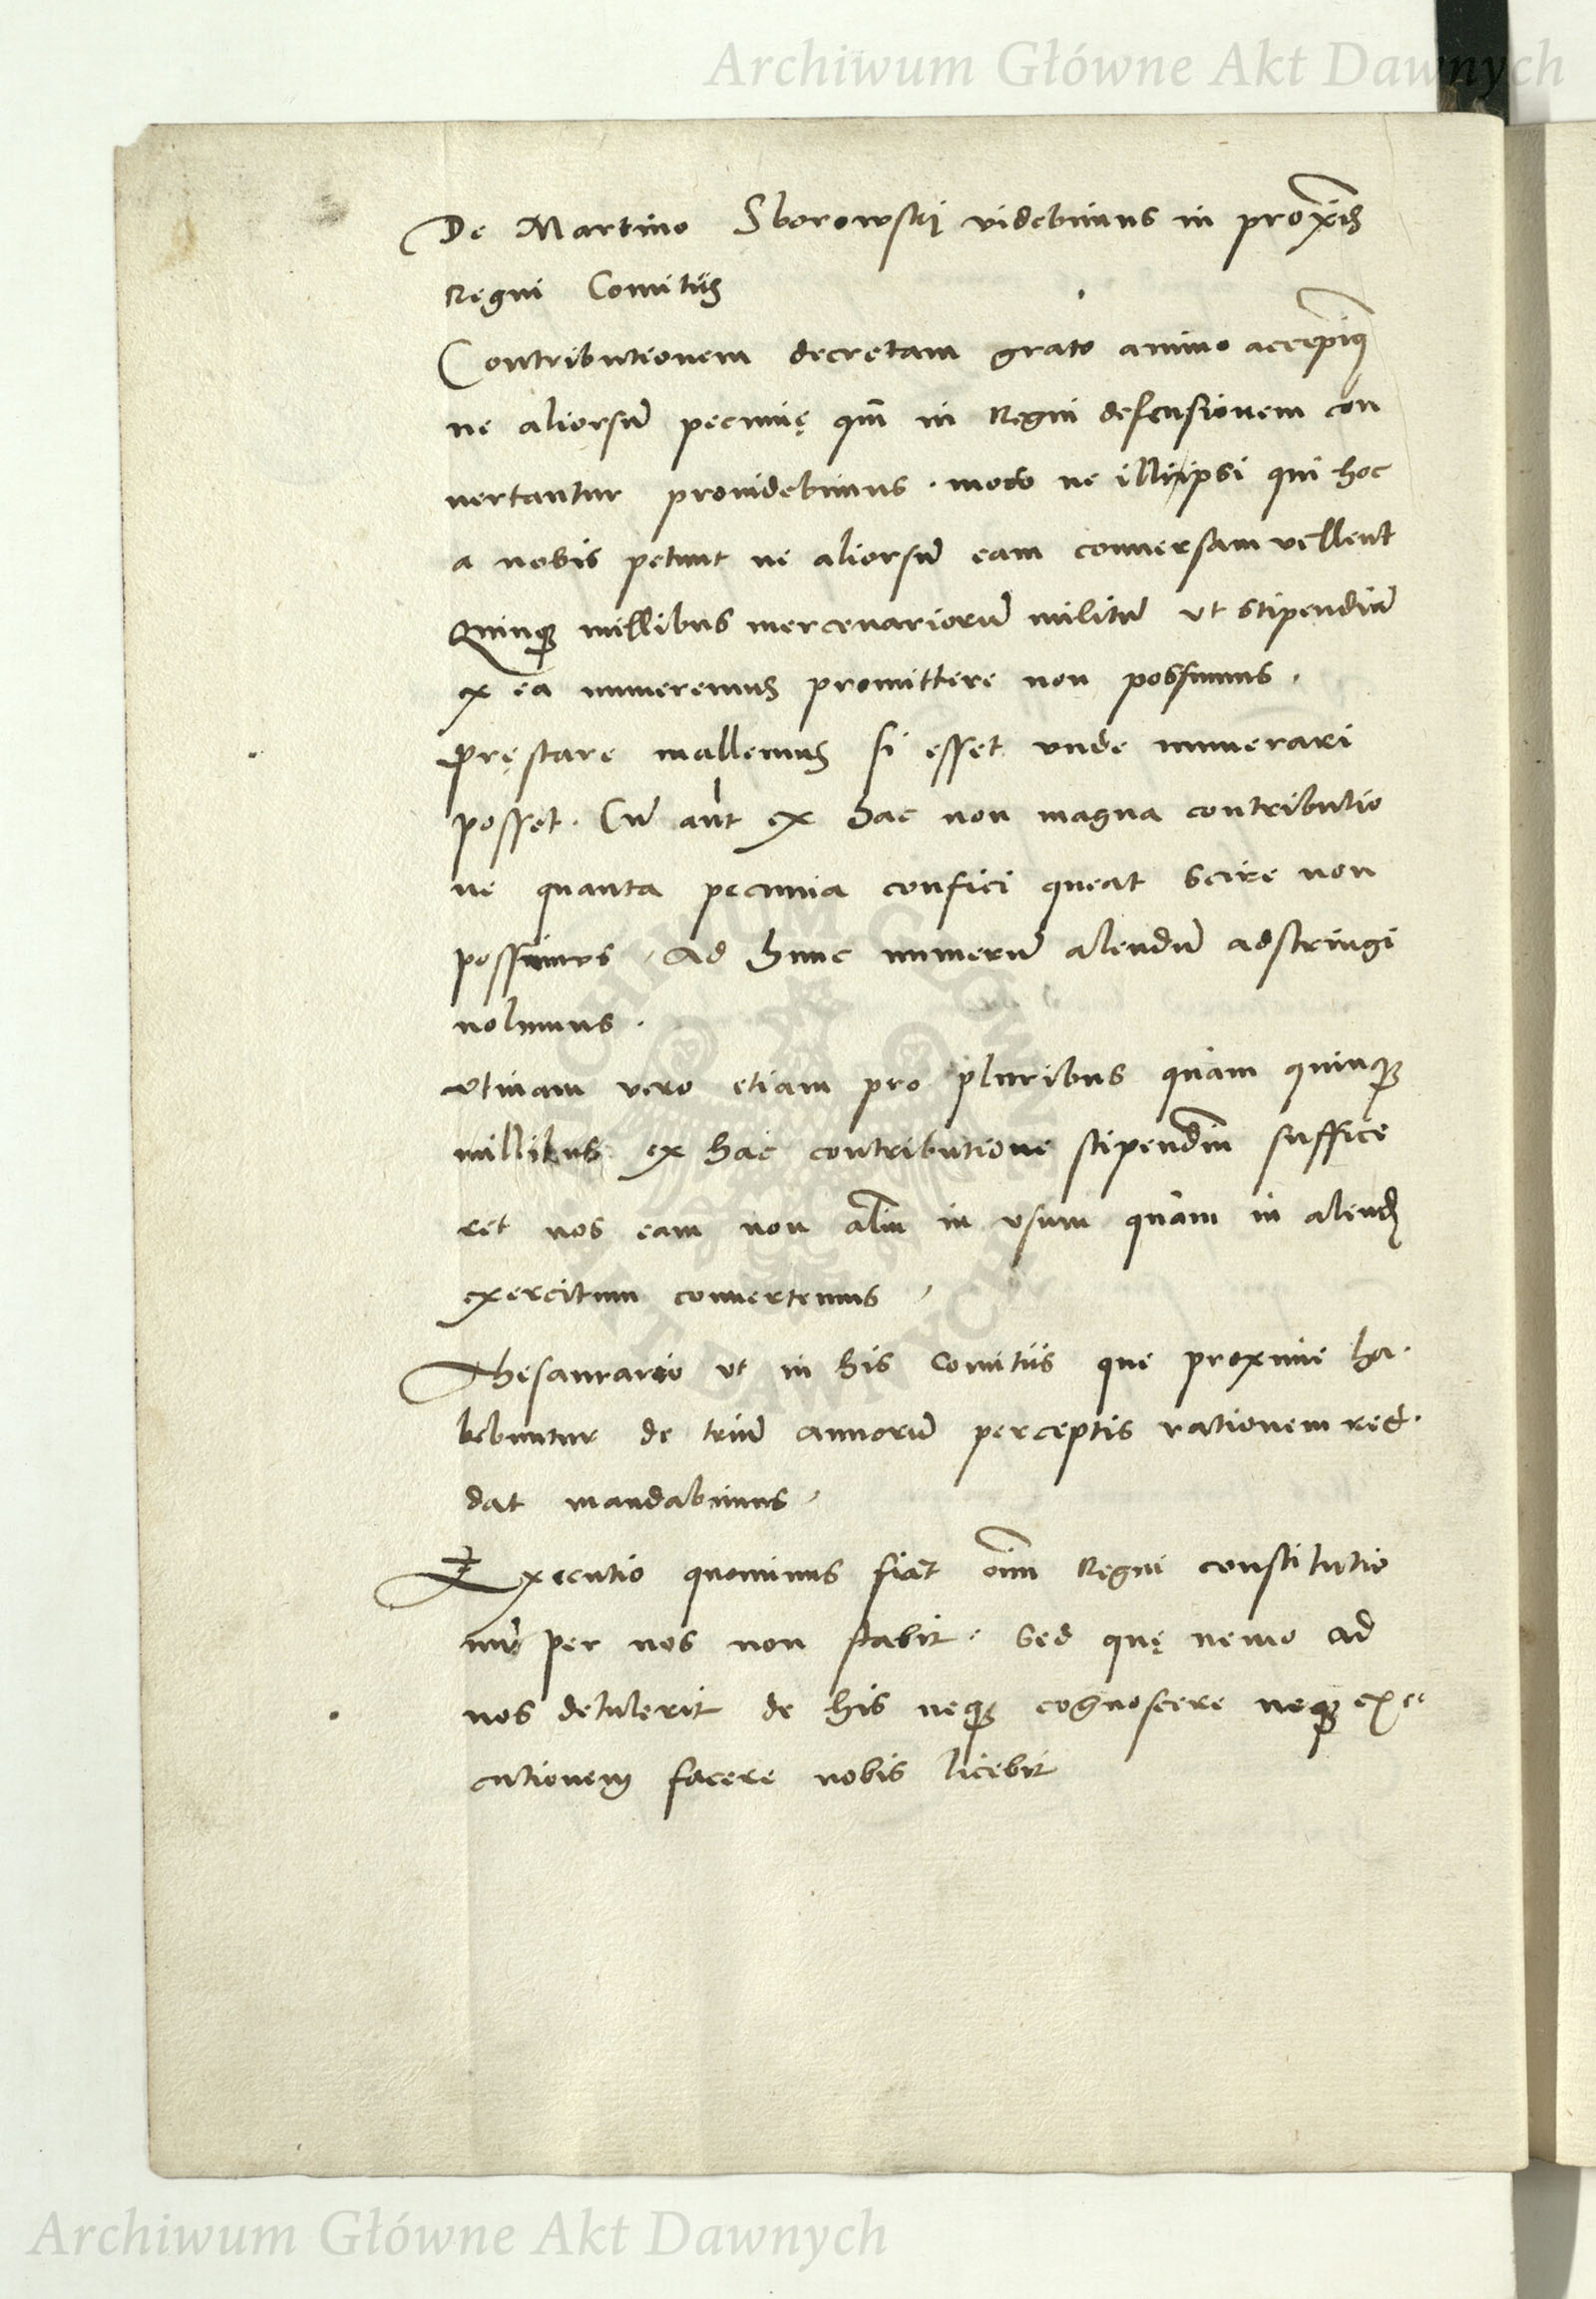 Archiwum Główne Akt Dawnych
De Martino Sborowskj videbimus in proxīs
Regni Comitiis
Contributionem decretam grato animo accepimꝰ
ne aliorsū pecunię qm̄ in Regni defensionem con
uertantur prouidebimus. modo ne illi ipsi qui hoc
a nobis petunt ne aliorsū eam conuersam vellent
Quinqꝫ millibus mercenariorū militū vt stipendiū
ex ea numeremus promittere non possumus.
pręstare mallemus si esset vnde numerari
posset. Cū aūt ex hac non magna contributio
ne quanta pecunia confici queat scire non
possimus, Ad hunc numerū alendū adstringi
nolumus.
vtinam vero etiam pro pluribus quàm quinqꝫ
millibus ex hac contributione stipendiū suffice
ret nos eam non aliū in vsum quàm in alendū
exercitum conuertemus,
Thesaurario vt in his Comitiis que proxime ha.
bebuntur de triū annorū perceptis rationem red.
dat mandabimus,
Executio quominus fiat oīm Regni constitutio
nū per nos non stabit. Sed quę nemo ad
nos detulerit de his neqꝫ cognoscere neqꝫ exe
cutionem facere nobis licebit
ARCHIWUM GŁÓWNE AKT DAWNYCH
Archiwum Główne Akt Dawnych